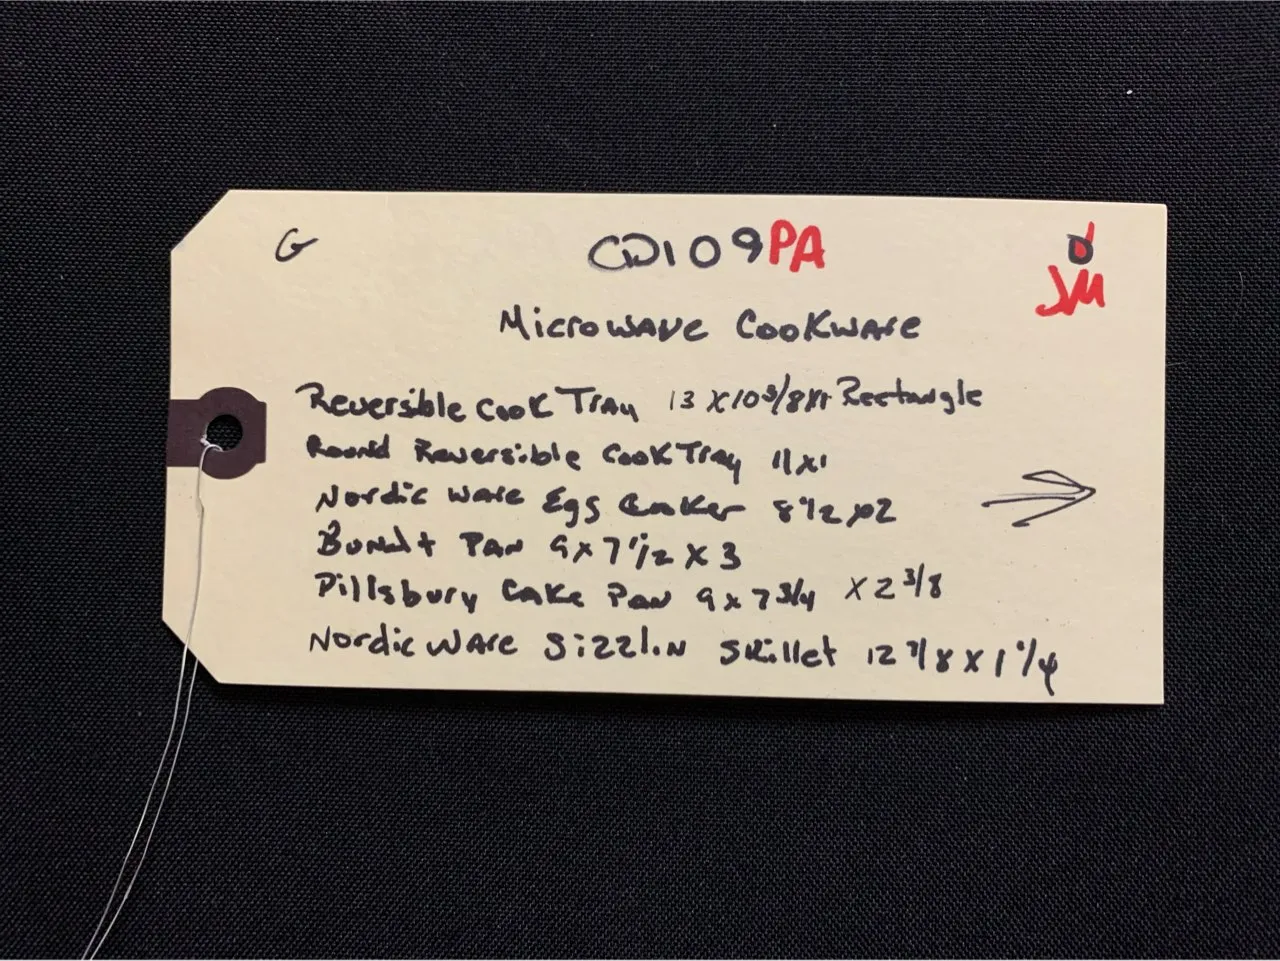 G CD109PA
JM
Microwave Cookware
Reversible Cook Tray 13 x 10 3/8 x 1 Rectangle
Round Reversible Cook Tray 11 x 1
Nordic Ware Egg Cooker 8 1/2 x 2
Bundt Pan 9 x 7 1/2 x 3
Pillsbury Cake Pan 9 x 7 3/4 x 2 3/8
Nordic Ware Sizzlin Skillet 12 7/8 x 1 1/4